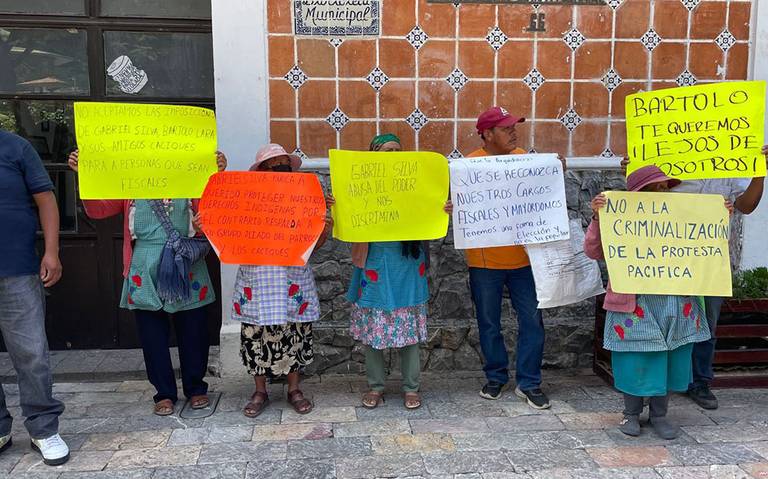 Municipal
66
NO ACEPTAMOS LAS IMPOSICIONES
DE GABRIEL SILVA, BARTOLO LARA
Y SUS AMIGOS CACIQUES
PARA A PERSONAS QUE SEAN
FISCALES
GABRIEL SILVA
DEBIDO PROTEGER NUESTROS
DERECHOS INDIGENAS POR
EL CONTRARIO RESPALDA A
GRUPO ALIADO DEL PARROCO
Y LOS CACIQUES
GABRIEL SILVA
ABUSA DEL PODER
Y NOS
DISCRIMINA
QUE SE RECONOZCA
NUESTROS CARGOS
FISCALES Y MAYORDOMOS
Tenemos una forma de
Elección y
no es la popular
BARTOLO
TE QUEREMOS
¡LEJOS DE
NOSOTROS!
NO A LA
CRIMINALIZACIÓN
DE LA PROTESTA
PACIFICA